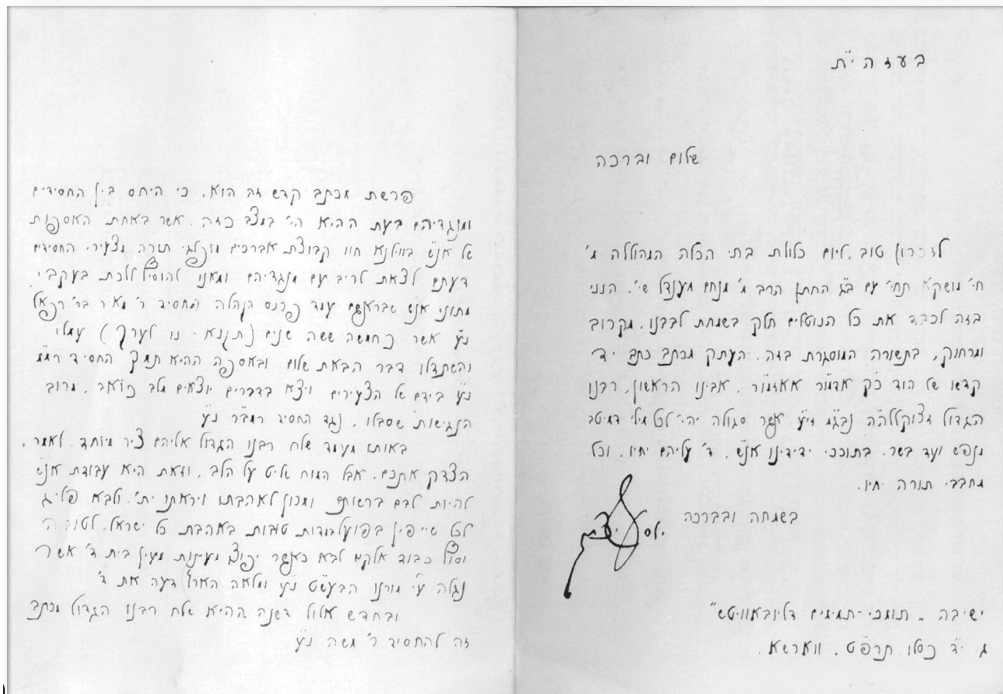 בעזהי״ת
שלום וברכה
לזכרון טוב, ליום כלולת בתי הכלה המהוללה מ׳
חי׳ מושקא תחי׳ עם ב״ג החתן הרב מ׳ מנחם מענדל שי׳, הנני
בזה לכבד את כל הנוטלים חלק בשמחת לבבנו, מקרוב
ומרחוק, בתשורה המוסגרת בזה, העתק מכתב כתב יד
קדשו של הוד כ״ק אדמו״ר אאזמו״ר, אבינו הראשון, רבנו
הגדול נבג״מ זי״ע אשר סגולה יהי׳ לכל מילי דמיטב
מנפש ועד בשר, בתוככי ידידינו אנ״ש, ד׳ עליהם יחיו, וכל
מחבבי תורה יחיו.
בשמחה ובברכה
יוסף יצחק
ישיבה ״תומכי-תמימים דליובאוויטש״
ג׳ י״ד כסלו תרפ״ט, ווארשא.
פרשת מכתב קדש זה הוא, כי היחס בין החסידים
ומנגדיהם בעת ההיא הי׳ במצב כזה, אשר באחת האספות
של אנ״ש בווילנא חוו קבוצת אברכים מופלגי תורה מצעירי החסידים
דעתם לצאת לריב עם מנגדיהם ומאנו להוסיף ללכת בעקבי
מתוני אנ״ש שבראשם עמד פרנס הקהלה החסיד ר׳ מאיר בר׳ רפאל
נ״ע אשר כחמשה ששה שנים (תקנ״א - נו לערך) עמלו
והשתדלו דבר הבאת שלום ובאספה ההיא תמך החסיד
נ״ע בידם של הצעירים ויצא בדברים יוצאים מלב כואב, מרוב
הנגישות שסבלו, נגד החסיד נ״ע
באותו מעמד שלח רבנו הגדול אליהם ציר מיוחד, לאמר,
הצדק אתכם, אבל המוח שליט על הלב, וזאת היא עבודת אנ״ש
להיות לבם ברשותם ומכון לאהבתו ויראתו ית׳, ולבא פליג
לכל שייפין בפועל מדות טובות באהבת כל ישראל, לטוב ה׳
וסוף כבוד אלקים לבא כאשר יפוצו מעינות מעין בית ד׳ אשר
נגלה ע״י מורנו הבעש״ט נ״ע ומלאה הארץ דעה את ד׳
ובחדש אלול דשנה ההיא שלח רבנו הגדול מכתב
זה להחסיד ר׳ משה נ״ע